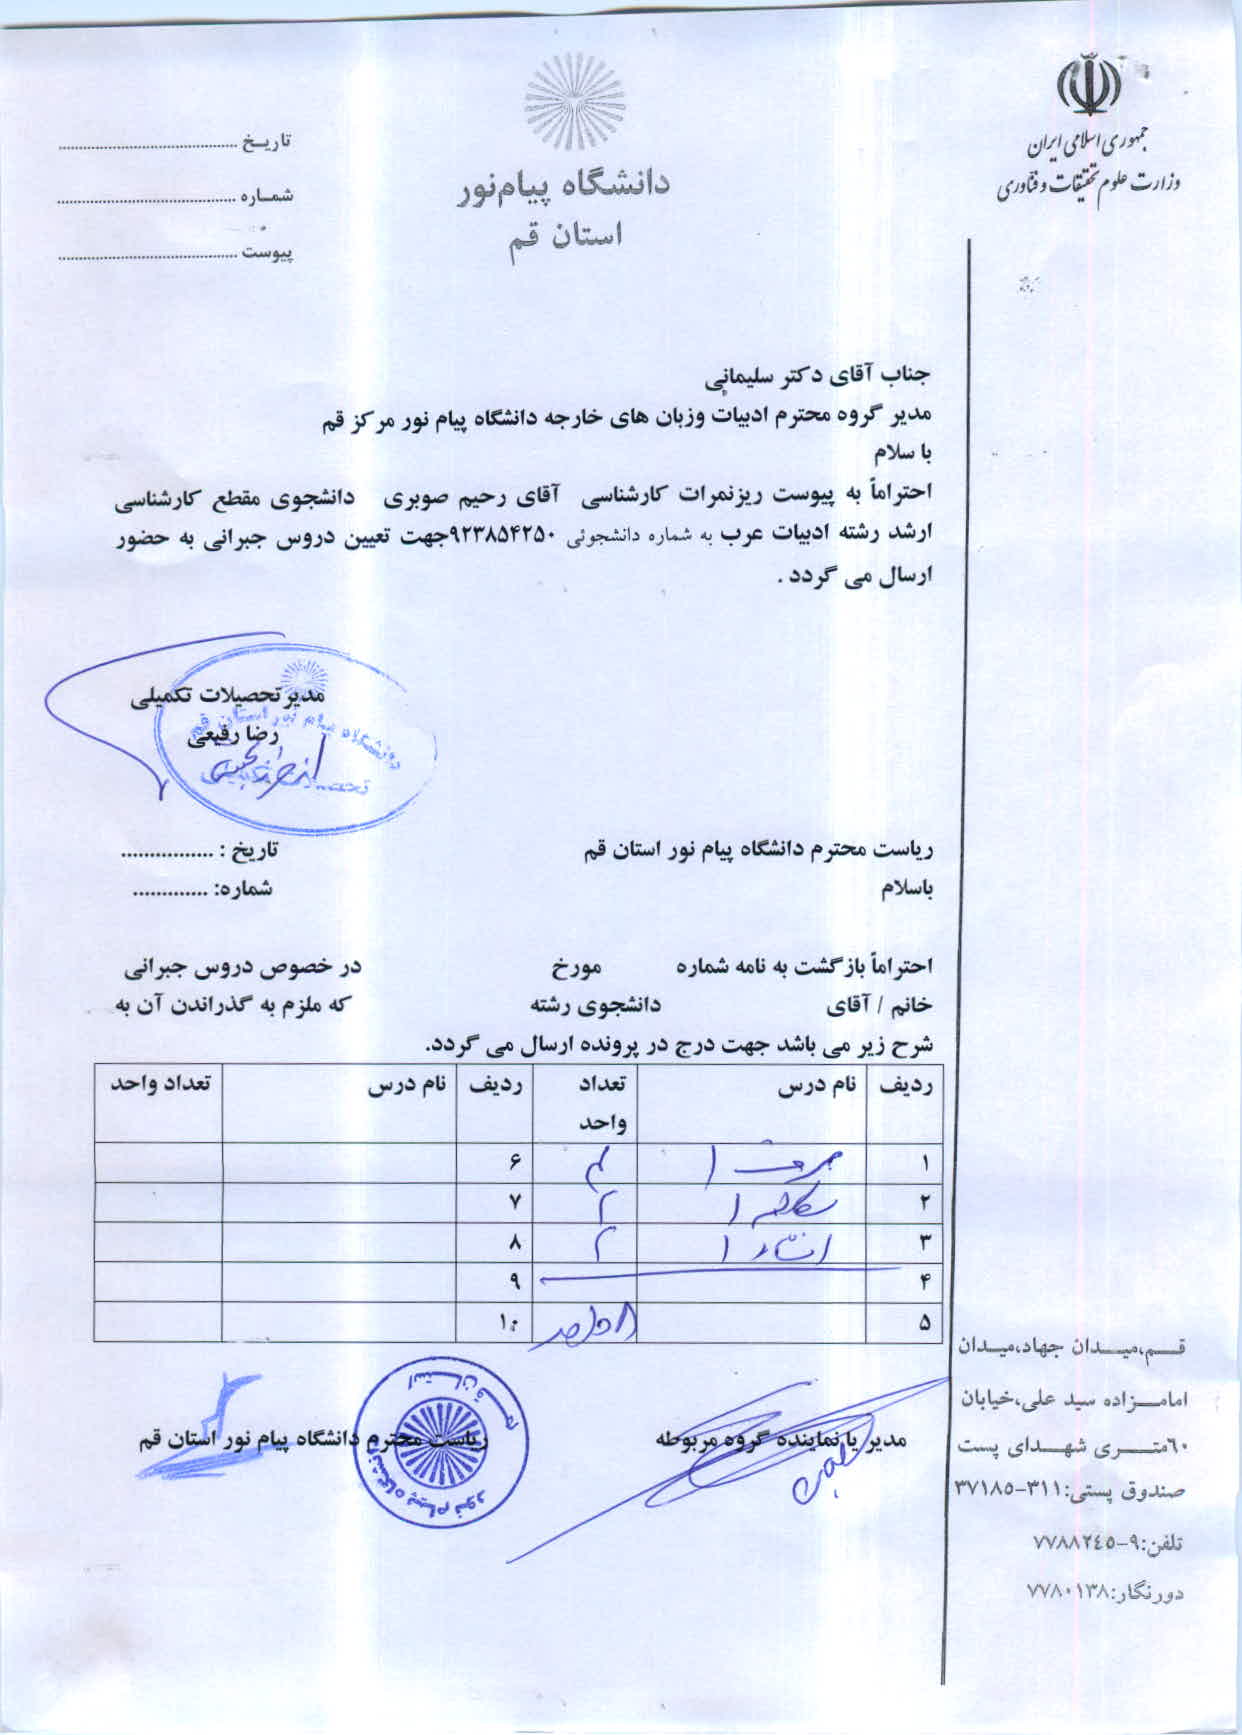 جمهوری اسلامی ایران
وزارت علوم تحقیقات و فناوری
دانشگاه پیام‌نور
استان قم
تاریـخ ........................................
شمـاره ........................................
پیوست ........................................
جناب آقای دکتر سلیمانی
مدیر گروه محترم ادبیات وزبان های خارجه دانشگاه پیام نور مرکز قم
با سلام
احتراماً به پیوست ریزنمرات کارشناسی آقای رحیم صوبری دانشجوی مقطع کارشناسی
ارشد رشته ادبیات عرب به شماره دانشجوئی ۹۲۳۸۵۴۲۵۰جهت تعیین دروس جبرانی به حضور
ارسال می گردد .
مدیر تحصیلات تکمیلی
رضا رفیعی
دانشگاه پیام نور استان قم
ریاست محترم دانشگاه پیام نور استان قم تاریخ : ................
باسلام شماره: .............
احتراماً بازگشت به نامه شماره مورخ در خصوص دروس جبرانی
خانم / آقای دانشجوی رشته که ملزم به گذراندن آن به
شرح زیر می باشد جهت درج در پرونده ارسال می گردد.
ردیف نام درس تعداد واحد ردیف نام درس تعداد واحد
۱ صرف ۱ ۴ ۶
۲ مکالمه ۱ ۲ ۷
۳ انشاء ۱ ۲ ۸
۴ ۹
۵ ۸ واحد ۱۰
مدیر یا نماینده گروه مربوطه ریاست محترم دانشگاه پیام نور استان قم
دانشگاه پیام نور
استان قم
قـم،میـدان جهاد،میـدان
امامـزاده سید علی،خیابان
۶۰متـری شهـدای پست
صندوق پستی:۳۱۱-۳۷۱۸۵
تلفن:۹-۷۷۸۸۲۴۵
دورنگار:۷۷۸۰۱۳۸